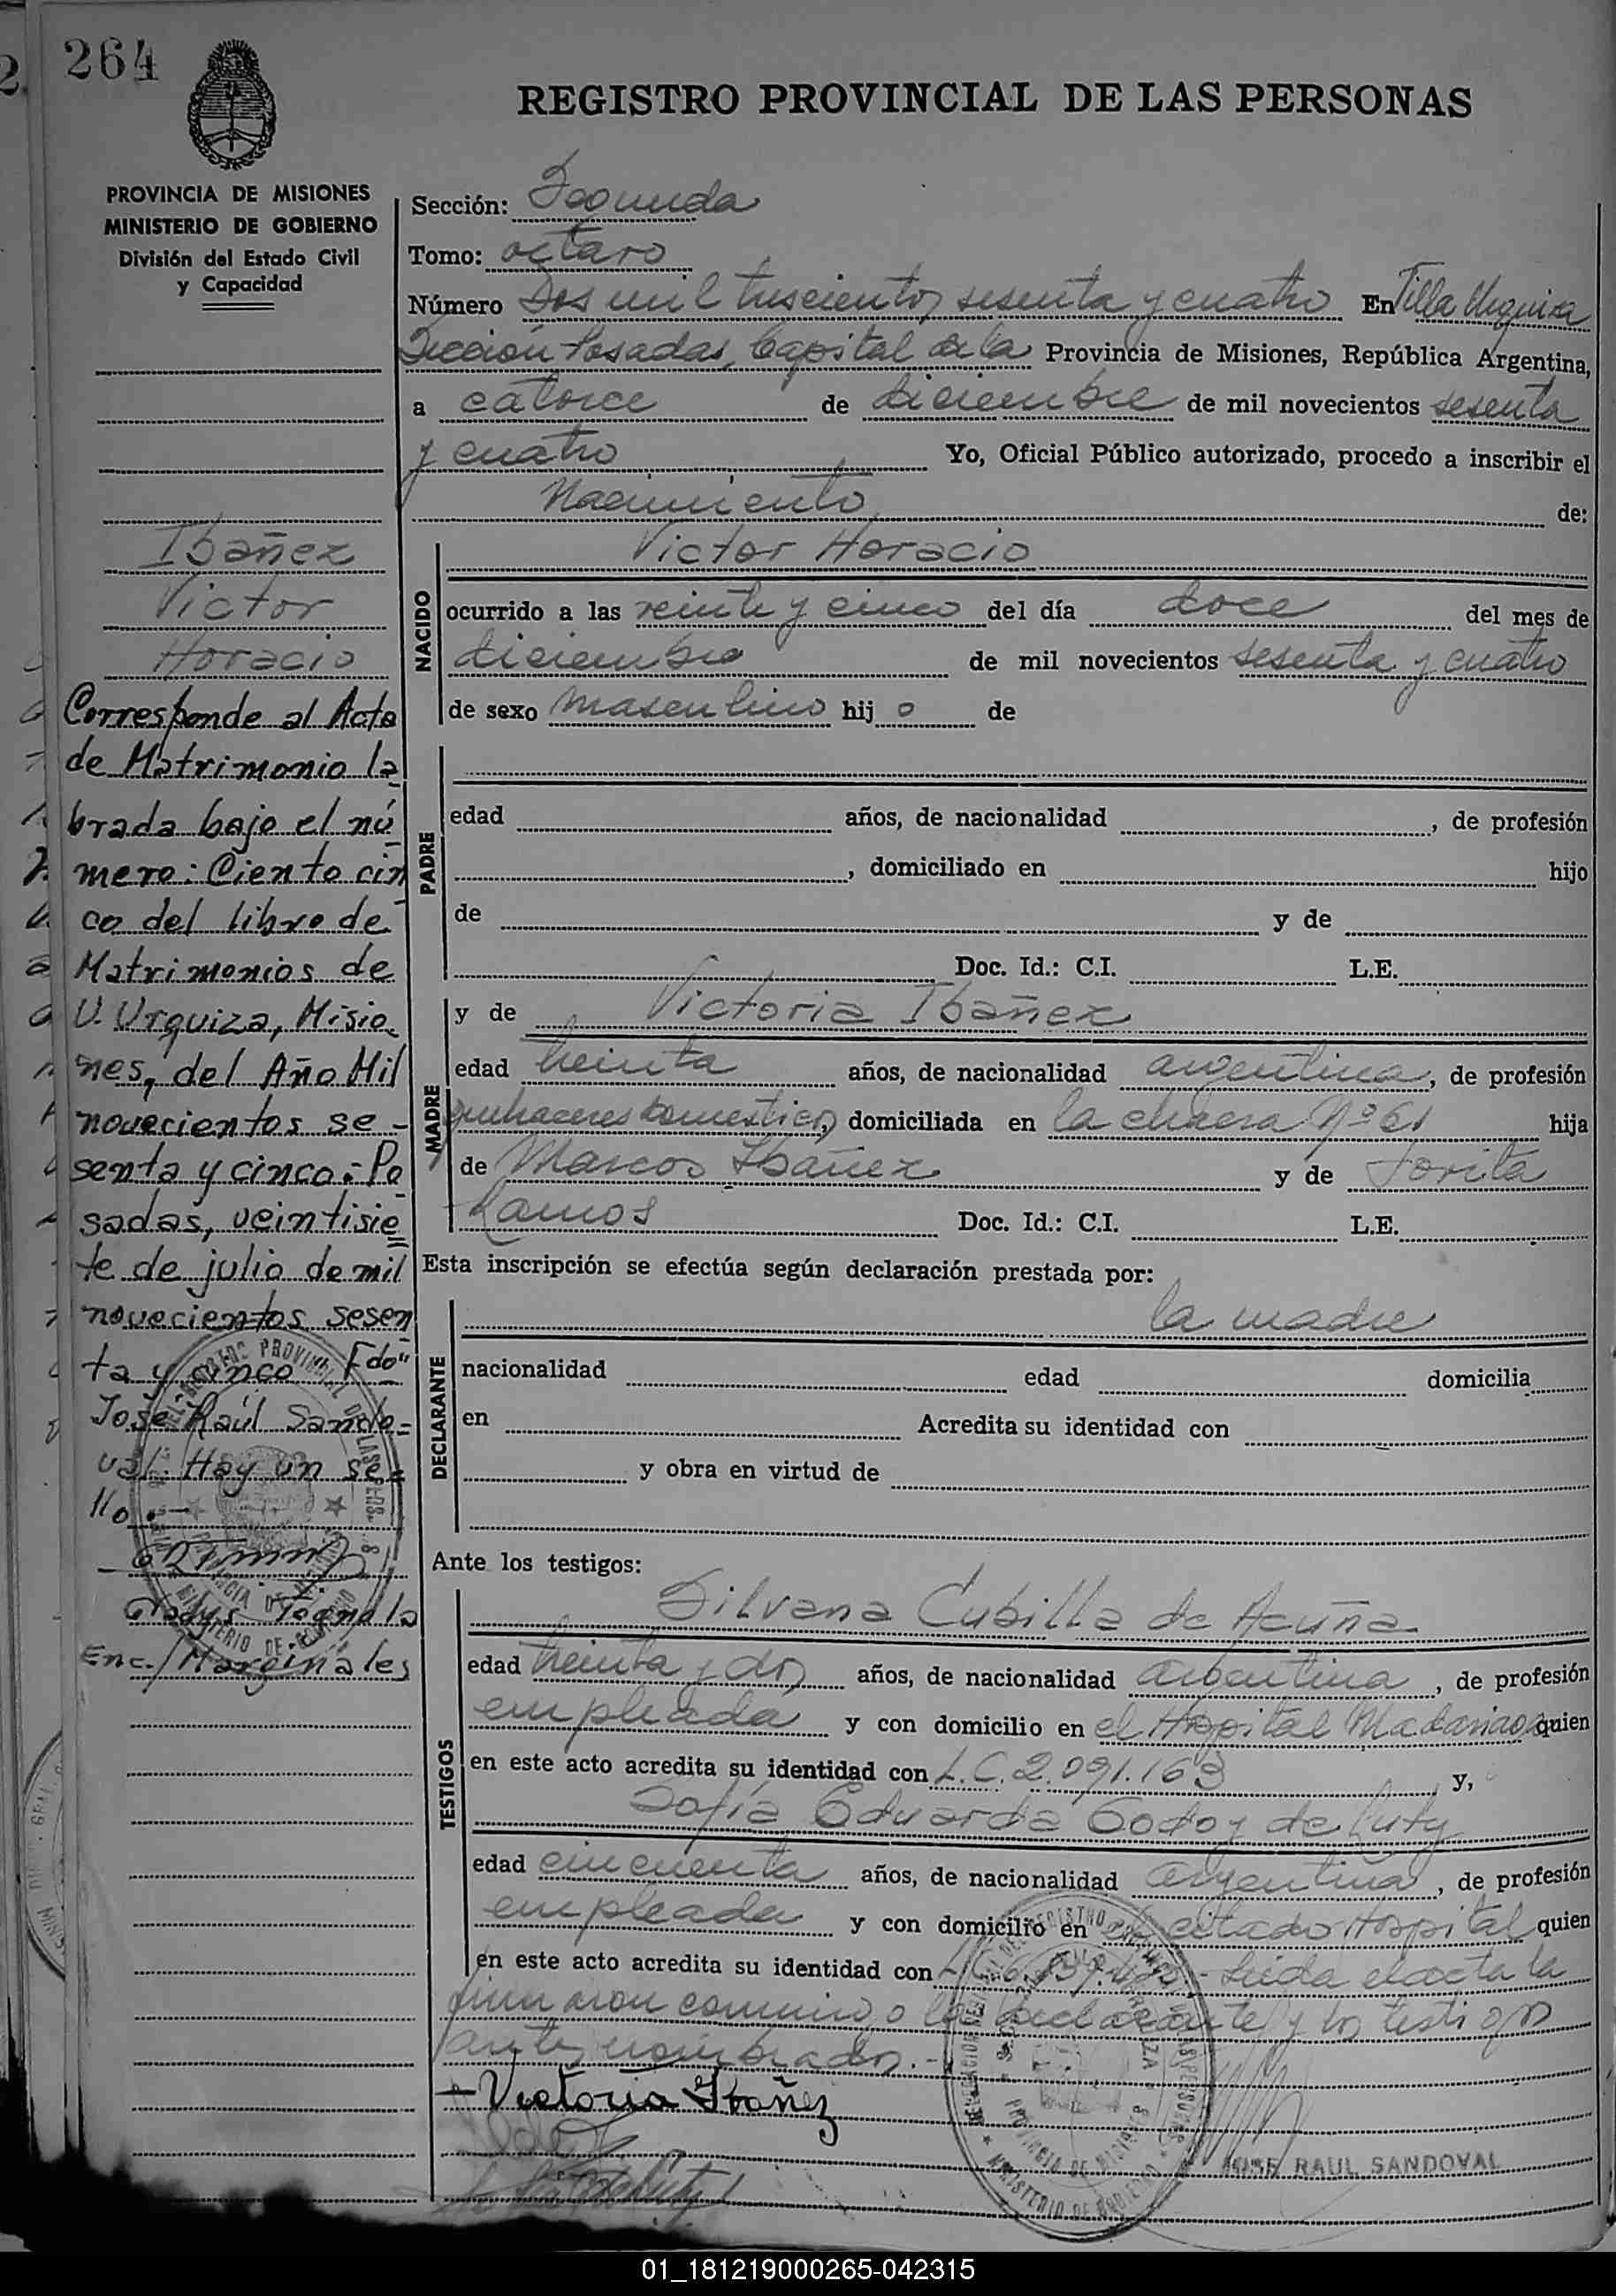 264
REGISTRO PROVINCIAL DE LAS PERSONAS
PROVINCIA DE MISIONES
MINISTERIO DE GOBIERNO
División del Estado Civil
y Capacidad
Ibañez
Victor
Horacio
Corresponde al Acta
de Matrimonio la
brada bajo el nú
mero: Ciento cin
co del libro de
Matrimonios de
V. Urquiza, Misio
nes, del Año Mil
novecientos se-
senta y cinco.- Po
sadas, veintisie
te de julio de mil
novecientos sesen
ta y cinco Fdo"
José Raúl Sando=
val: Hay un se
llo.-
Gladys
Enc./Marginales
Sección: Segunda
Tomo: octavo
Número Dos mil trescientos sesenta y cuatro En Villa Urquiza
Sección Posadas, Capital de la Provincia de Misiones, República Argentina,
a catorce de diciembre de mil novecientos sesenta
y cuatro Yo, Oficial Público autorizado, procedo a inscribir el
Nacimiento de:
NACIDO
Victor Horacio
ocurrido a las veinte y cinco del día doce del mes de
diciembre de mil novecientos sesenta y cuatro
de sexo masculino hij o de
PADRE
edad años, de nacionalidad , de profesión
, domiciliado en hijo
de y de
Doc. Id.: C.I. L.E.
MADRE
y de Victoria Ibañez
edad treinta años, de nacionalidad argentina, de profesión
quehaceres domésticos, domiciliada en la chacra Nº 61 hija
de Marcos Ibañez y de Jorita
Ramos Doc. Id.: C.I. L.E.
Esta inscripción se efectúa según declaración prestada por:
DECLARANTE
la madre
nacionalidad edad domicilia
en Acredita su identidad con
y obra en virtud de
Ante los testigos:
TESTIGOS
Silvana Cubilla de Acuña
edad treinta y dos años, de nacionalidad argentina, de profesión
empleada y con domicilio en el Hospital Madariaga quien
en este acto acredita su identidad con L.C. 2.091.163 y,
Sofía Eduarda Godoy de Luty
edad cincuenta años, de nacionalidad argentina, de profesión
empleada y con domicilio en el citado Hospital quien
en este acto acredita su identidad con Leida el acta la
firmaron conmigo la declarante y los testigos
antes nombrados.-
Victoria Ibañez
JOSE RAUL SANDOVAL
01_181219000265-042315